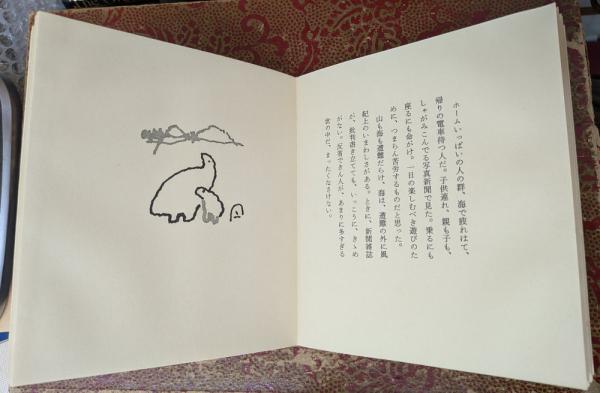 ホームいっぱいの人の群、海で疲れはて、
帰りの電車待つ人だ。子供連れ、親も子も、
しゃがみこんでる写真新聞で見た。乗るにも
座るにも命がけ。一日の楽しむべき遊びのた
めに、つまらん苦労するものだと思った。
山も海も遭難だらけ、海は、遭難の外に風
紀上のいまわしさがある。ときに、新聞雑誌
が、批判書き立てても、いっこうに、きゝめ
がない。反省できん人が、あまりに多すぎる
世の中だ。まったくなさけない。